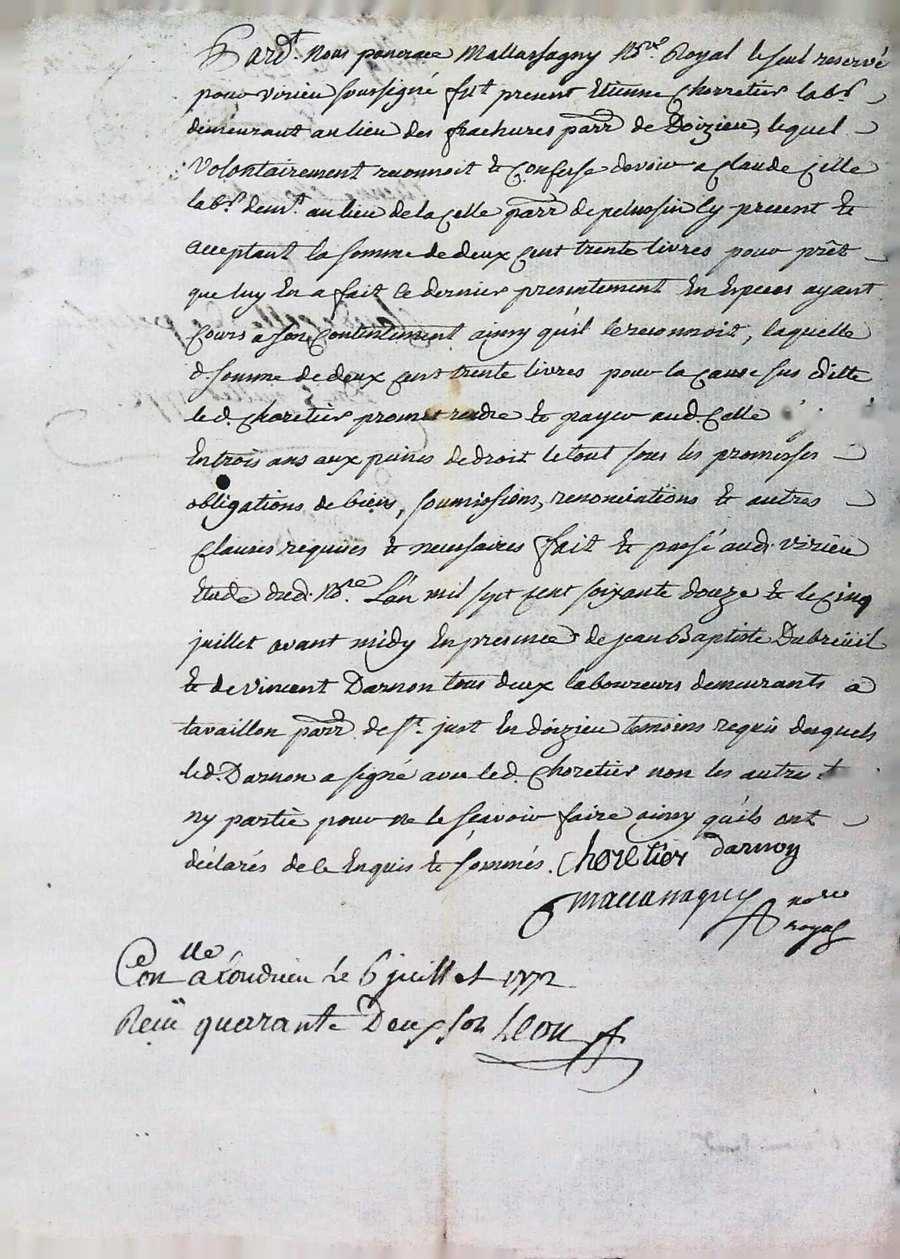 Pardt. Nous pancrace Mallassagny Nore. Royal le seul reservé
pour virieu soussigné fut present Etienne Chorretier labr.
demeurant au lieu des frachures parr. de Doizieu, lequel
volontairement reconnoit & Confesse devoir a Claude Celle
labr. demt. au lieu de la Celle parr. de pelussin Cy present &
acceptant la somme de deux cent trente livres pour prêt
que luy En a fait ce dernier presentement En Especes ayant
Cours a son Contentement ainsy qu'il le reconnoit, laquelle
d. somme de deux cent trente livres pour la cause sus ditte
led. Choretier promet rendre & payer aud. Celle
En trois ans aux peines de droit le tout sous les promesses
obligations de biens, soumissions, renonciations & autres
clauses requises & necessaires fait & passé aud. virieu
Etude dud. Nore. L'an mil sept cent soixante douze & le Cinq
juillet avant midy En presence de jean Baptiste Dubreüil
& de vincent Darnon tous deux laboureurs demeurants a
tavaillon parr. de st. just En doizieu temoins requis desquels
led. Darnon a signé avec led. Choretier non les autres
ny partie pour ne le scavoir faire ainsy qu'ils ont
déclarés de ce Enquis & sommés. Choretier darnon
Mallassagny nore
royal
Conlle a Condrieu le 6 juillet 1772
Reçu quarante Deux sols